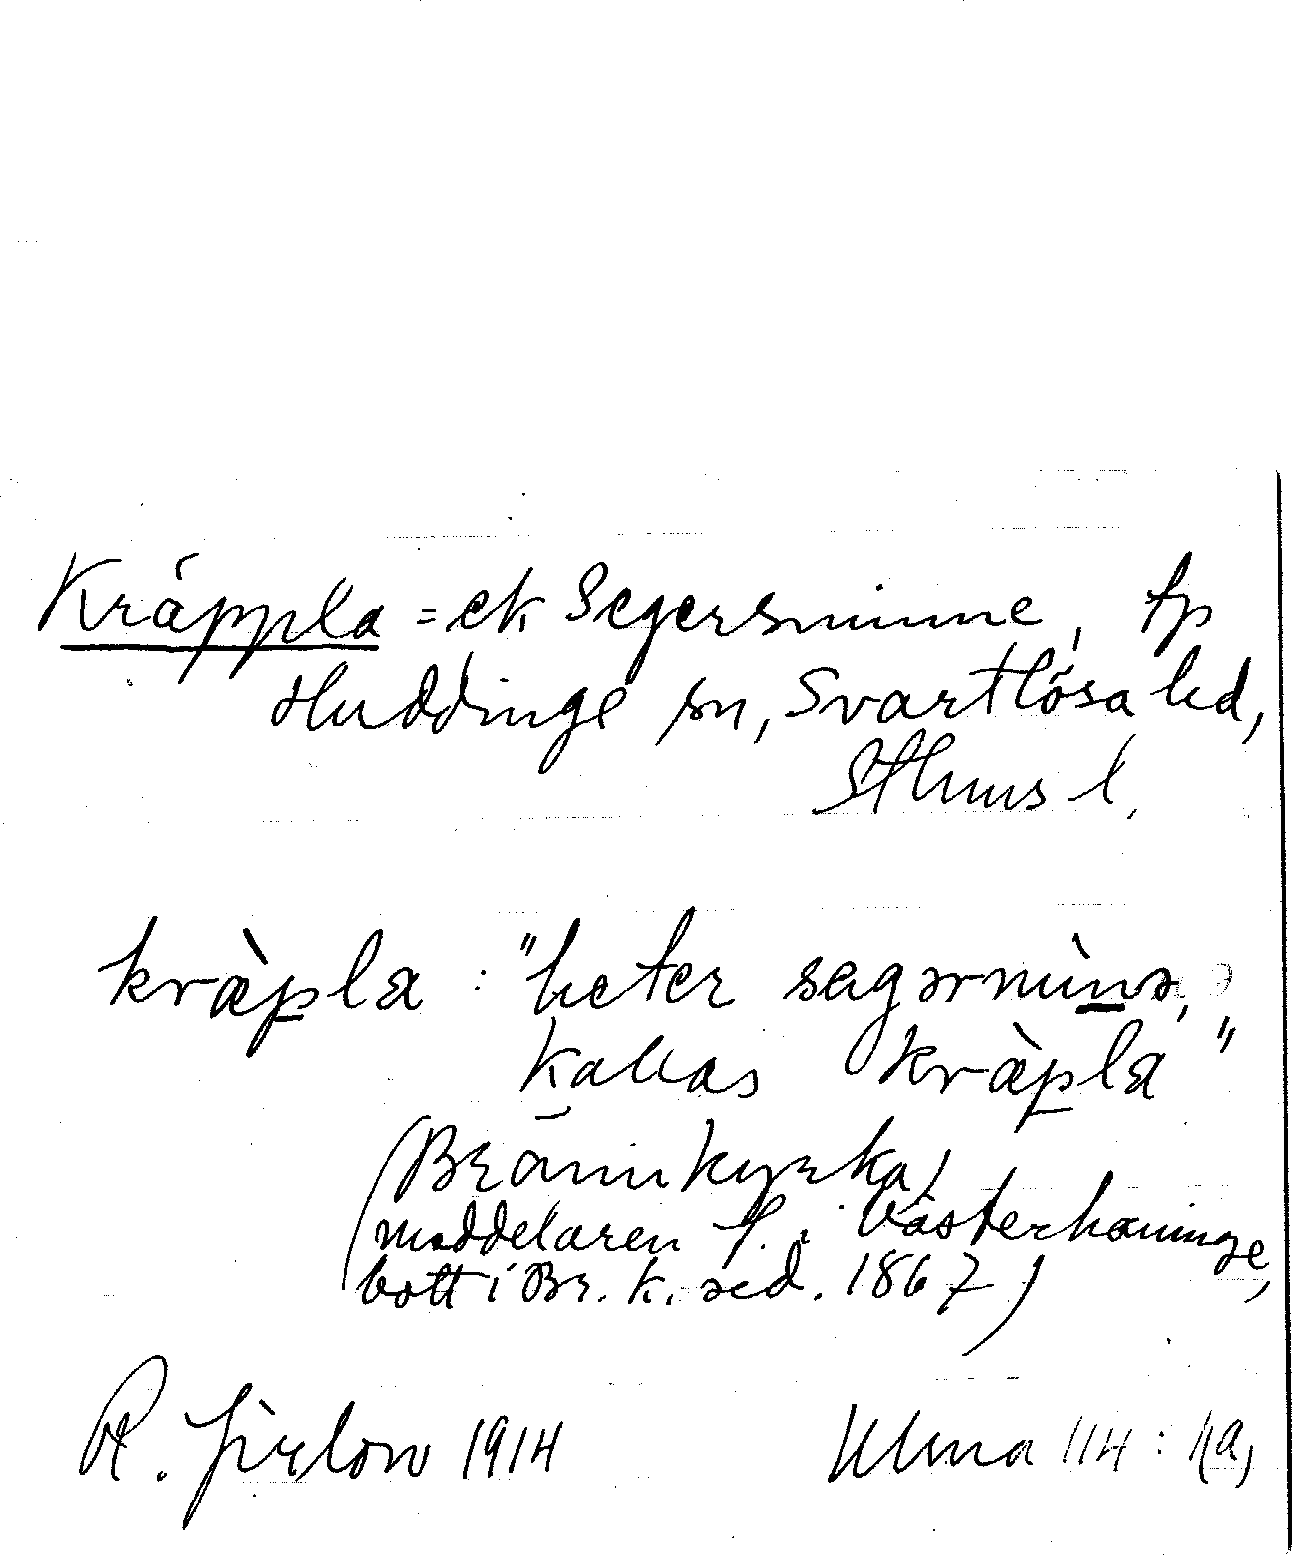 Kräppla = ek Segersminne, tp
Huddinge sn, Svartlösa hd,
Sthms l.
kræ̀pla : "heter segərmìnə,
kallas kræ̀pla"
(Brännkyrka,
meddelaren f. i Västerhaninge,
bott i Br. k. sed. 1867)
R. Jirlow 1914 Ulma 114: